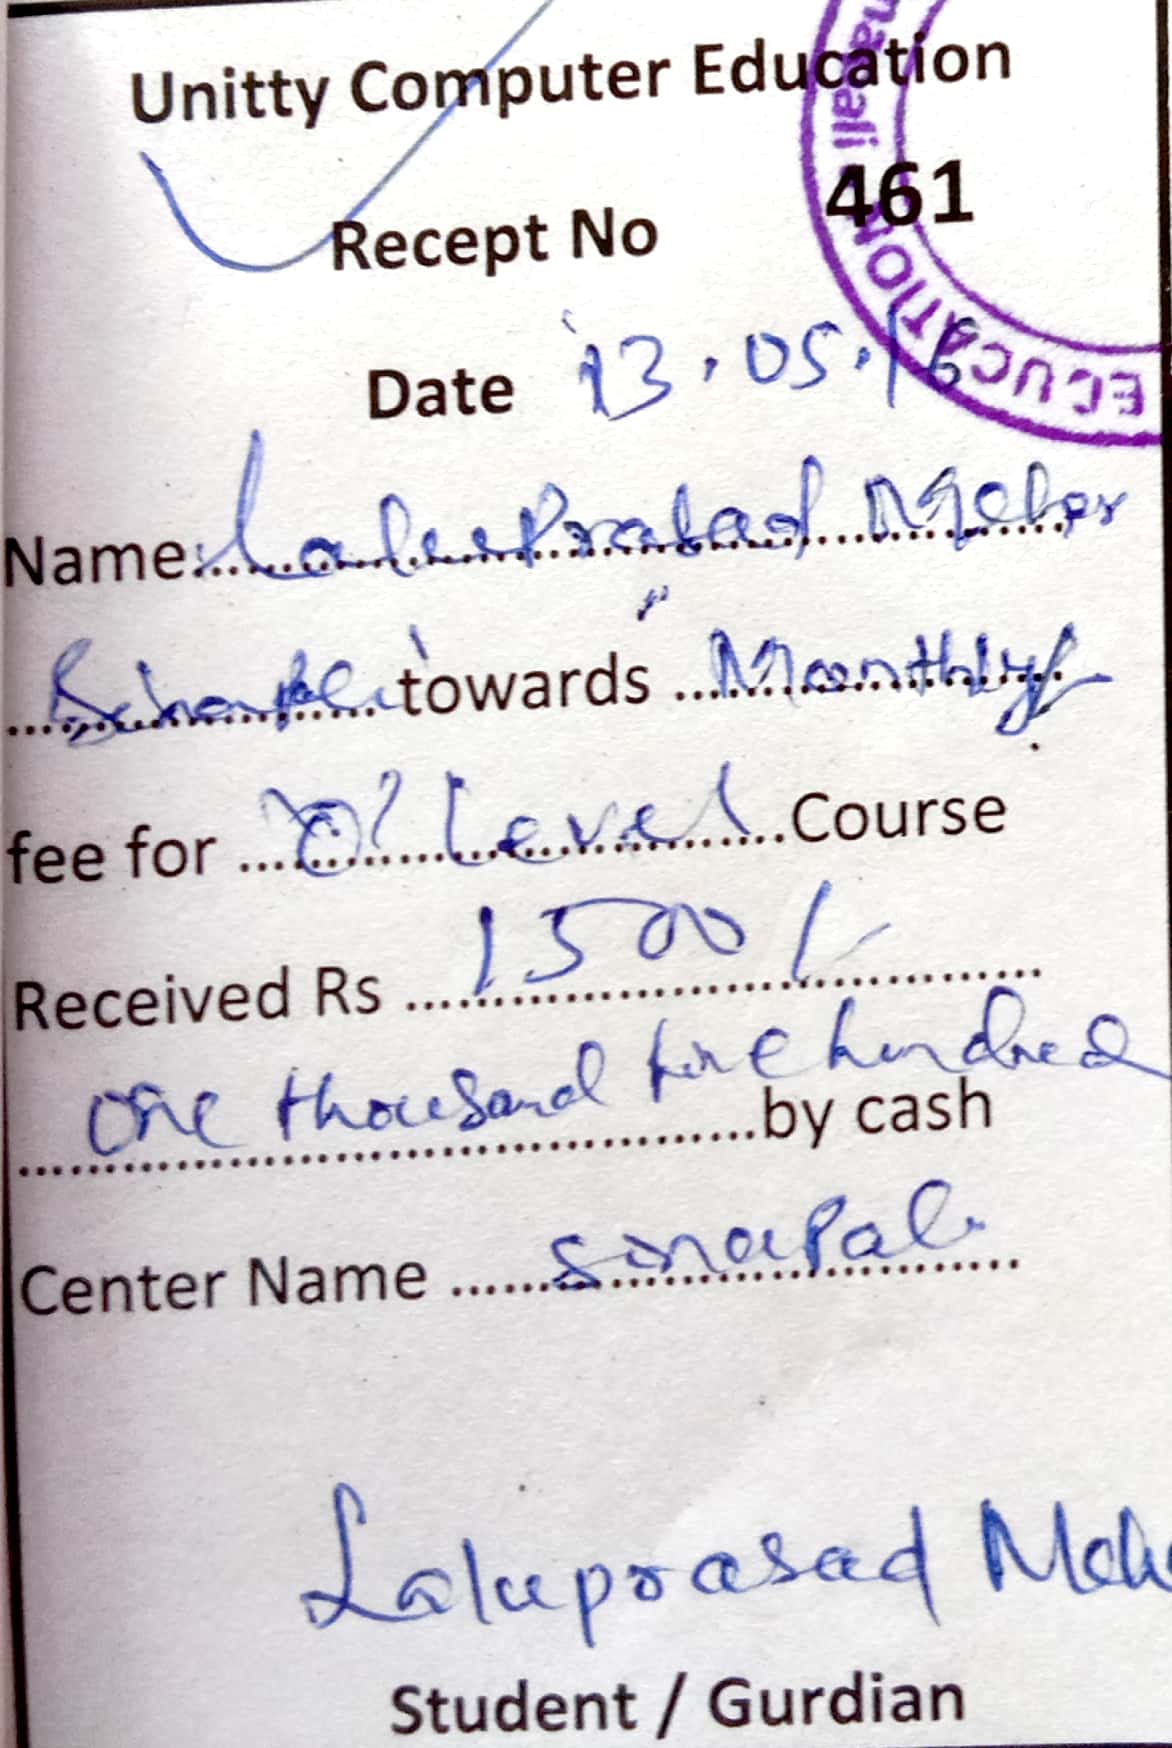 Unitty Computer Education
Recept No 461
Date 13.05.16
Name: Laluprasad Meher
towards Monthly
fee for 'O' Level Course
Received Rs 1500/-
one thousand five hundred
by cash
Center Name Sinapali
Laluprasad Meh
Student / Gurdian
EDUCATION